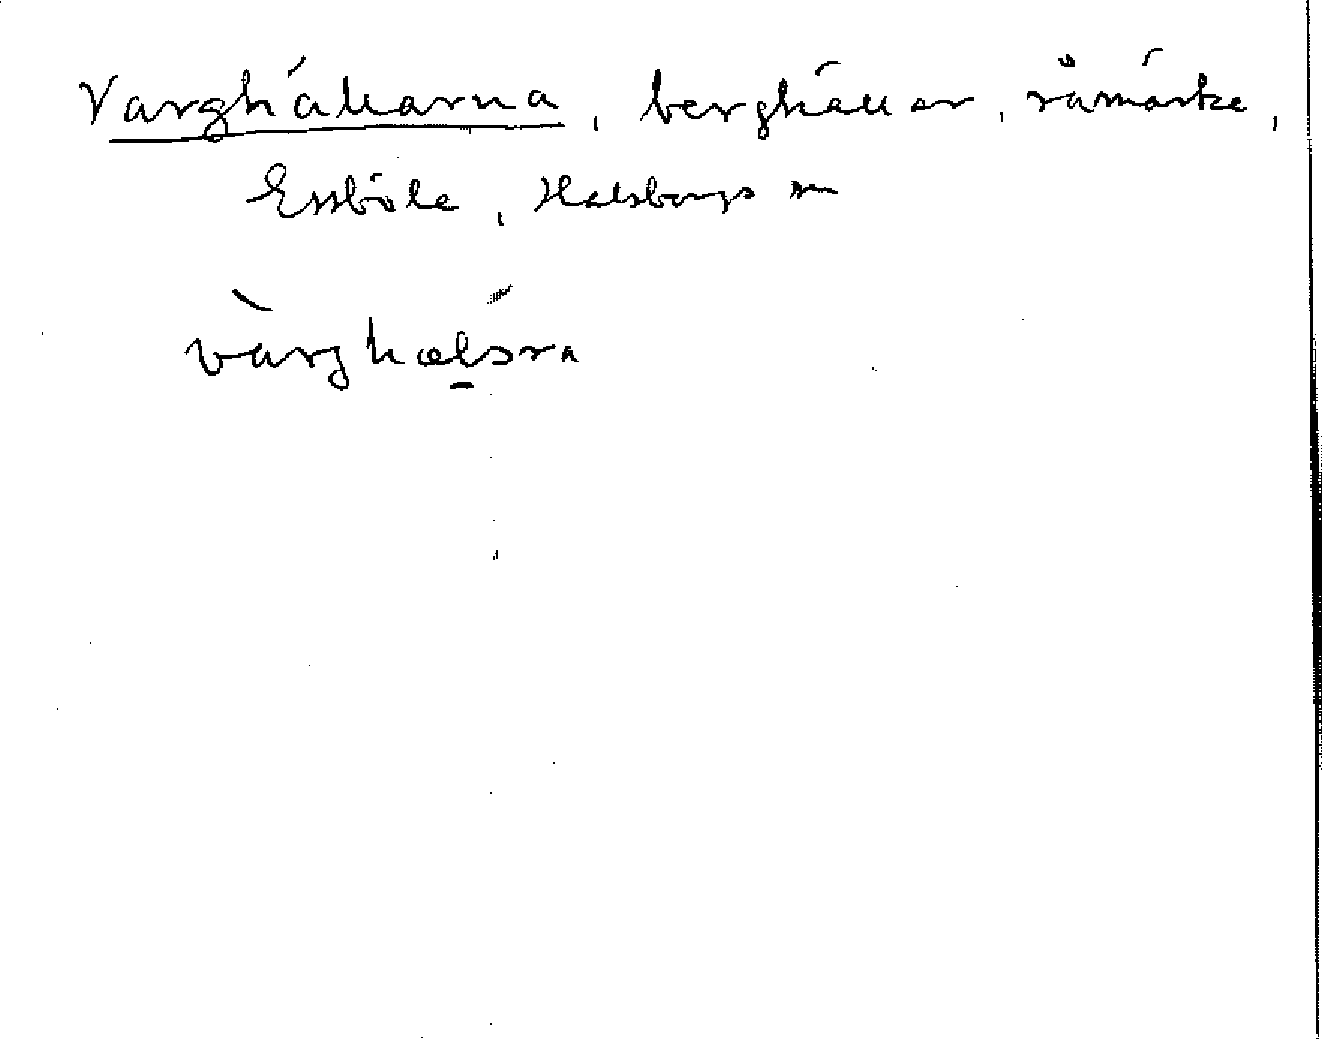 Varghällarna, berghällar, råmärke,
Essböle, Halsbergs sn
varghælsra